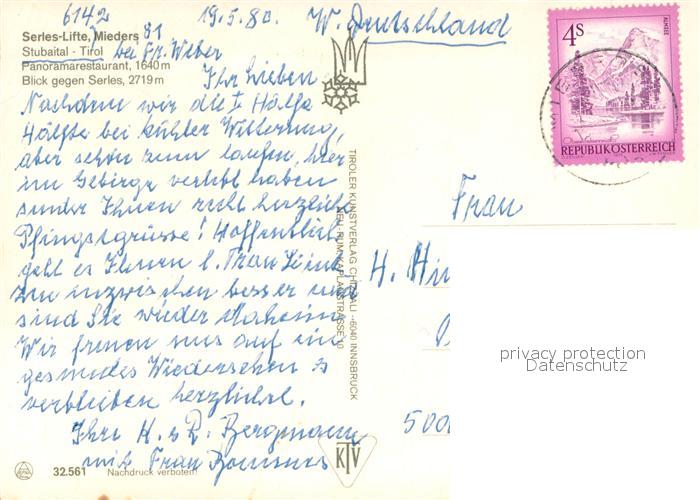 6142 81 19.5.80. W. Deutschland
Serles-Lifte, Mieders
Stubaital - Tirol bei Fr. Weber
Panoramarestaurant, 1640 m
Blick gegen Serles, 2719 m
Ihr Lieben
Nachdem wir die I Hälfte
Hälfte bei kühler Witterung,
aber schön zum laufen, hier
im Gebirge verlebt haben
senden Ihnen recht herzliche
Pfingstgrüsse! Hoffentlich
geht es Ihnen l. Frau
inzwischen besser und
sind Sie wieder daheim.
Wir freuen uns auf ein
gesundes Wiedersehen &
verbleiben herzlichst.
Ihre H. & R. Bergmann
mit Frau
32.561 Nachdruck verboten
TIROLER KUNSTVERLAG CHIZZALI - 6040 INNSBRUCK
NEU-RUM, KAPLANSTRASSE 10
KTV
4S
ALMSEE
REPUBLIK ÖSTERREICH
Frau
H.
500
privacy protection
Datenschutz